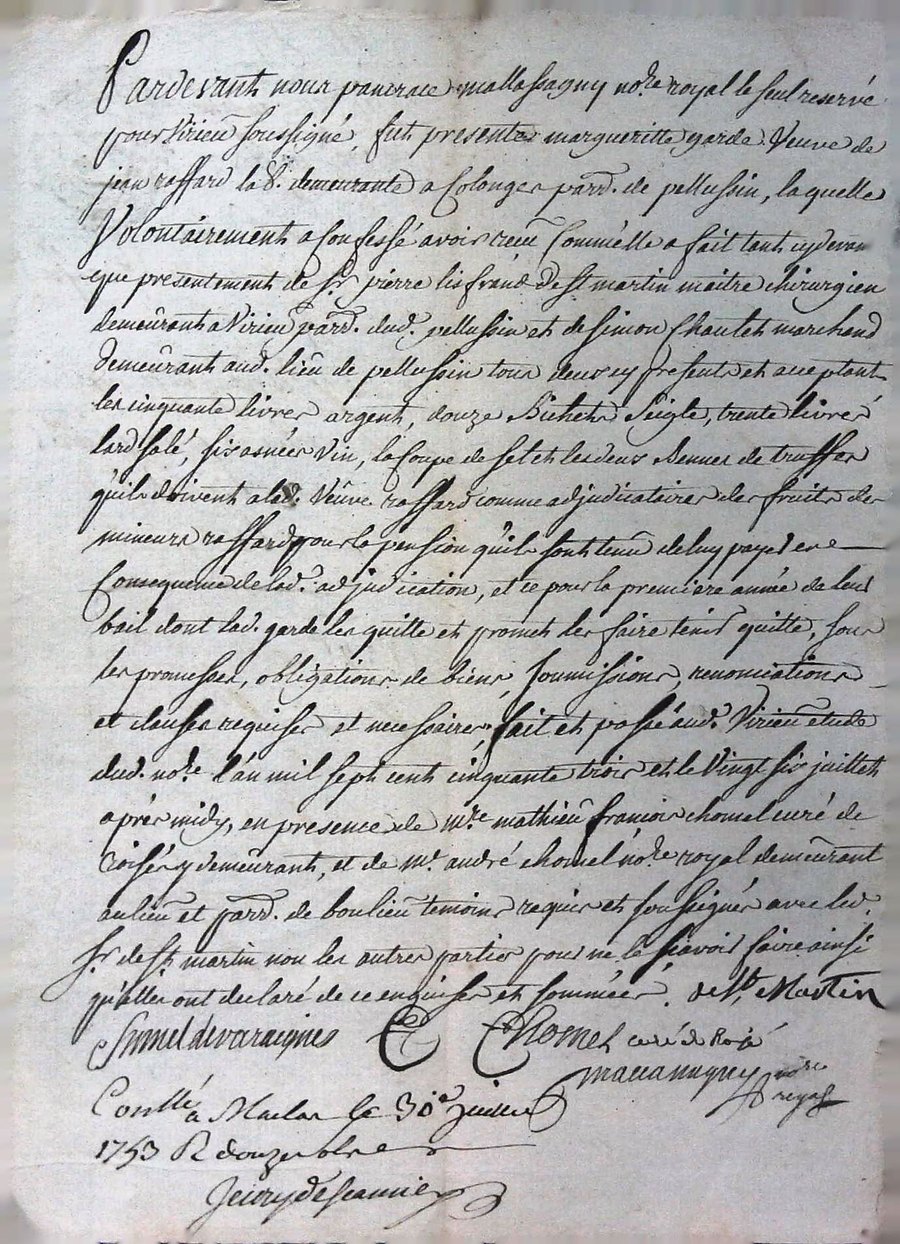 Pardevant nous pancrace mallassagny no.re royal le seul reservé
pour virieu soussigné, fut presente margueritte garde Veuve de
jean raffard la d. demeurante a Colonges parr. de pellussin, laquelle
Volontairement a confessé avoir receu Comm'elle a fait tant cydevan
que presentement de Sr. pierre lisfrand De St martin maitre chirurgien
demeûrant a Virieu parr. dud. pellussin et de simon Chautet marchand
demeûrant aud. lieu de pellussin tous deux cy presents et acceptants
les cinquante livres argent, douze Bichets Seigle, trente livres
lard salé, six asnées vin, la Coupe de sel et les deux Bennes de truffes
qu'ils doivent a lad. Veûve raffard comme adjudicataires des fruits des
mineurs raffard pour la pension qu'ils sont tenu de luy payer en
Consequence de lad. adjudication, et ce pour la premiere année de leur
bail dont lad. garde les quitte et promet les faire tenir quitte, sous
les promesses, obligations de biens, soumissions, renonciations
et clauses requises et necessaires, fait et passé aud. Virieu etude
dud. no.re l'an mil sept cent cinquante trois et le Vingt six juillet
aprés midy, en presence de m.re mathieu francois chomel curé de
roisé y demeûrant, et de m.e andré chomel no.re royal demeûrant
au lieu et parr. de boulieu temoins requis et soussignés avec led.
Sr. de St. martin non les autres parties pour ne le sçavoir faire ainsi
qu'elles ont declaré de ce enquises et sommées. de St. Martin
Chomel devaraignes Chomel curé de Roisé
massamigny no.re
royal
Conllé a Maclas le 30e juillet
1753 R douze sols